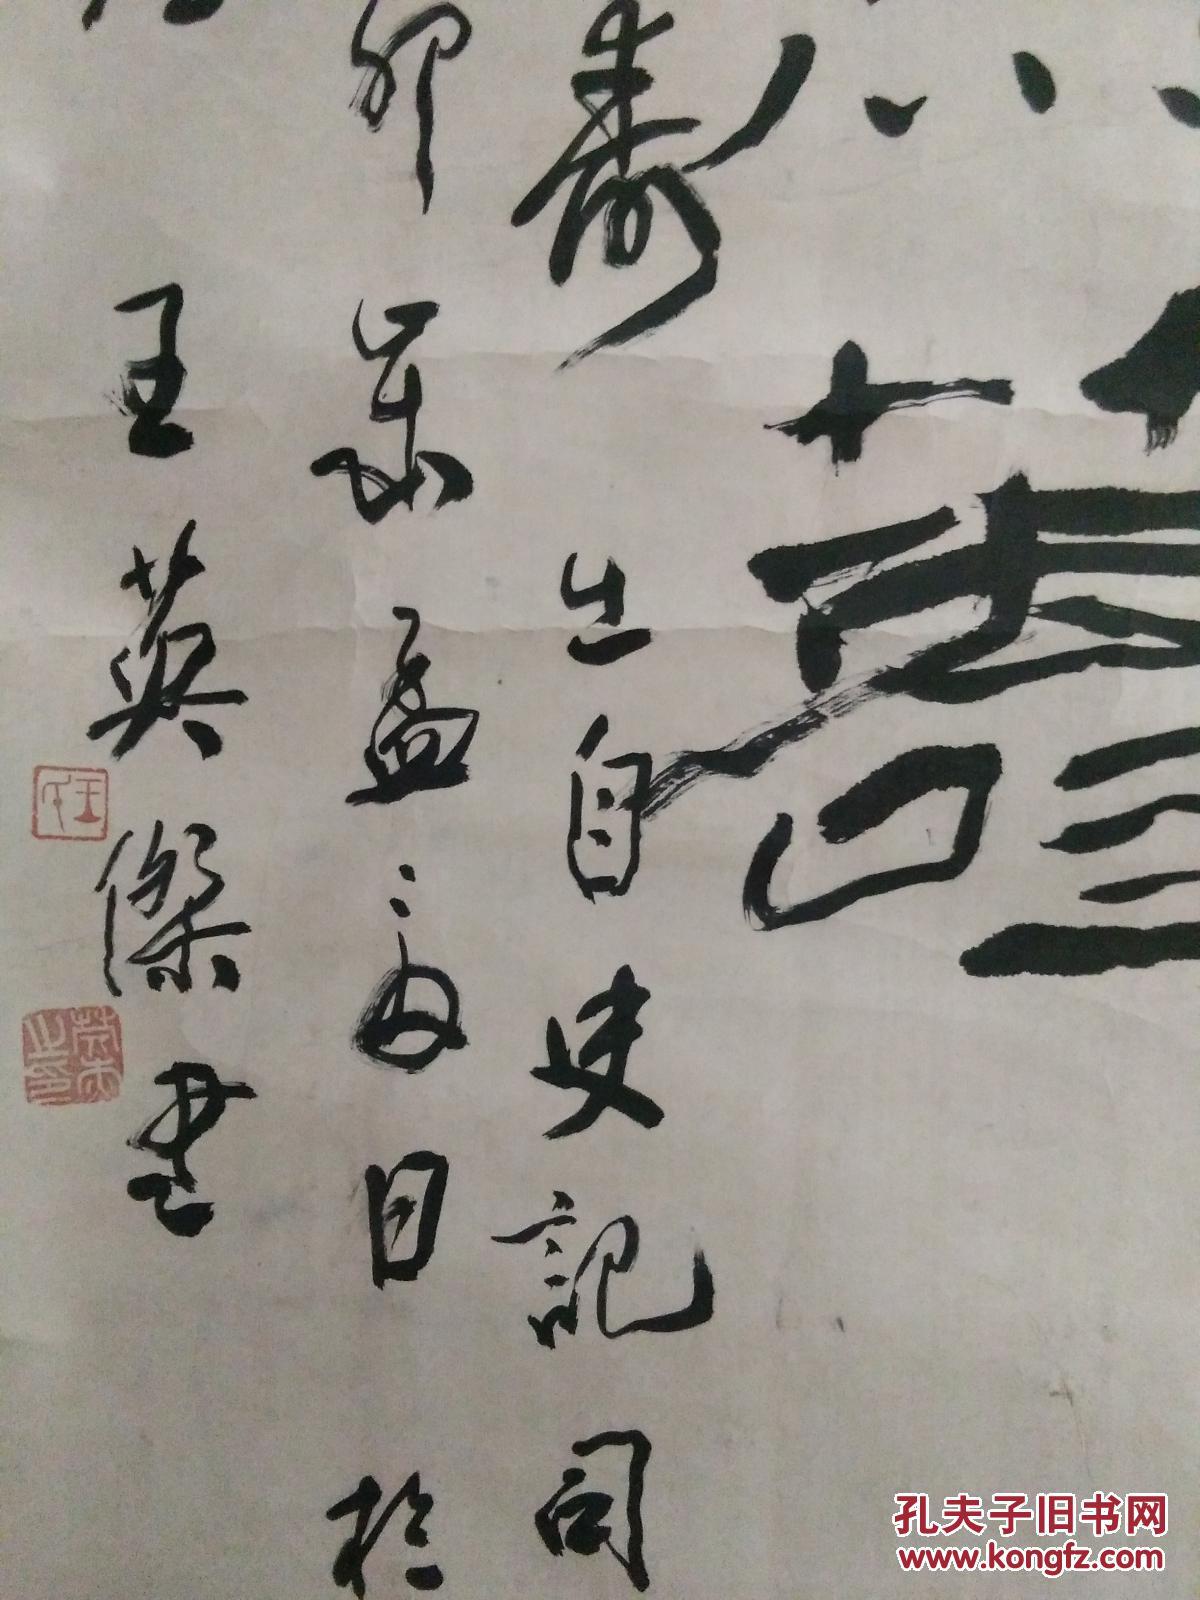 壽
出自史記司
卯歲孟夏月於
王英傑書
孔夫子旧书网
www.kongfz.com